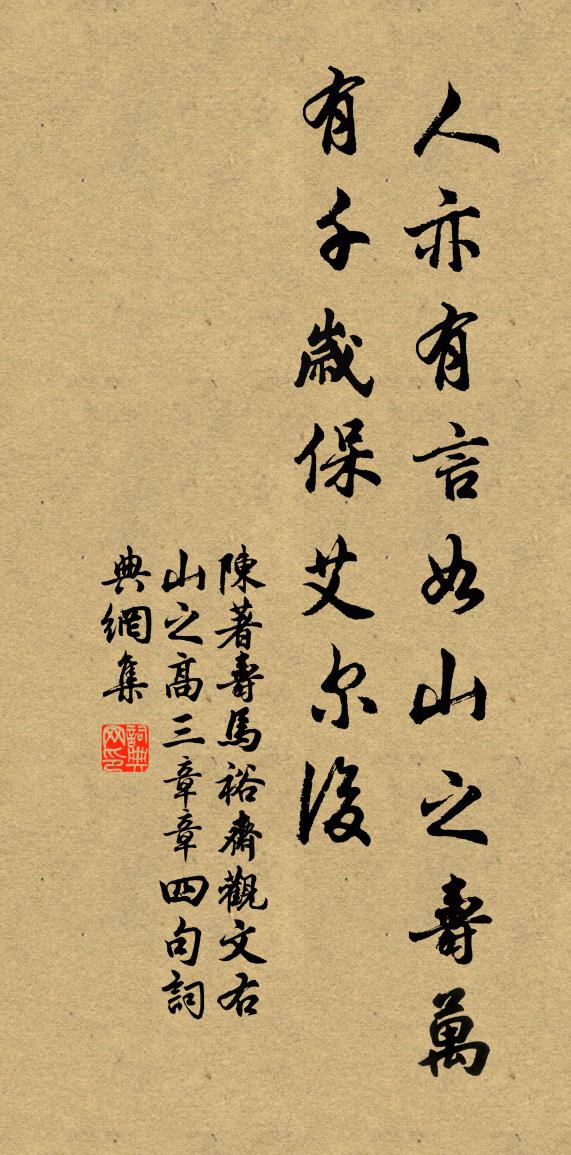 人亦有言如山之壽萬
有千歲保艾尔後
陳著壽馬裕齋觀文右
山之高三章章四句詞
典網集
詞典網印